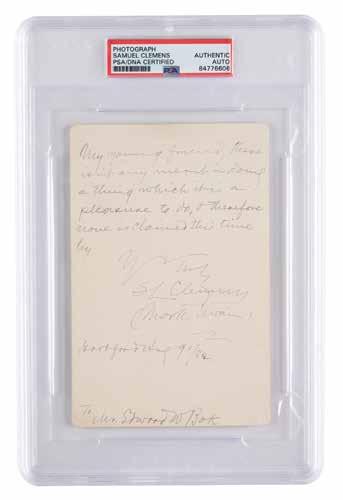 PHOTOGRAPH
SAMUEL CLEMENS
PSA/DNA CERTIFIED
AUTHENTIC
AUTO
84776606
PSA
My young friend, there
isn't any merit in doing
a thing which it is a
pleasure to do, & therefore
none is claimed this time
by
Ys Truly
SL Clemens
(Mark Twain)
Hartford
To Mr. Edward W. Bok